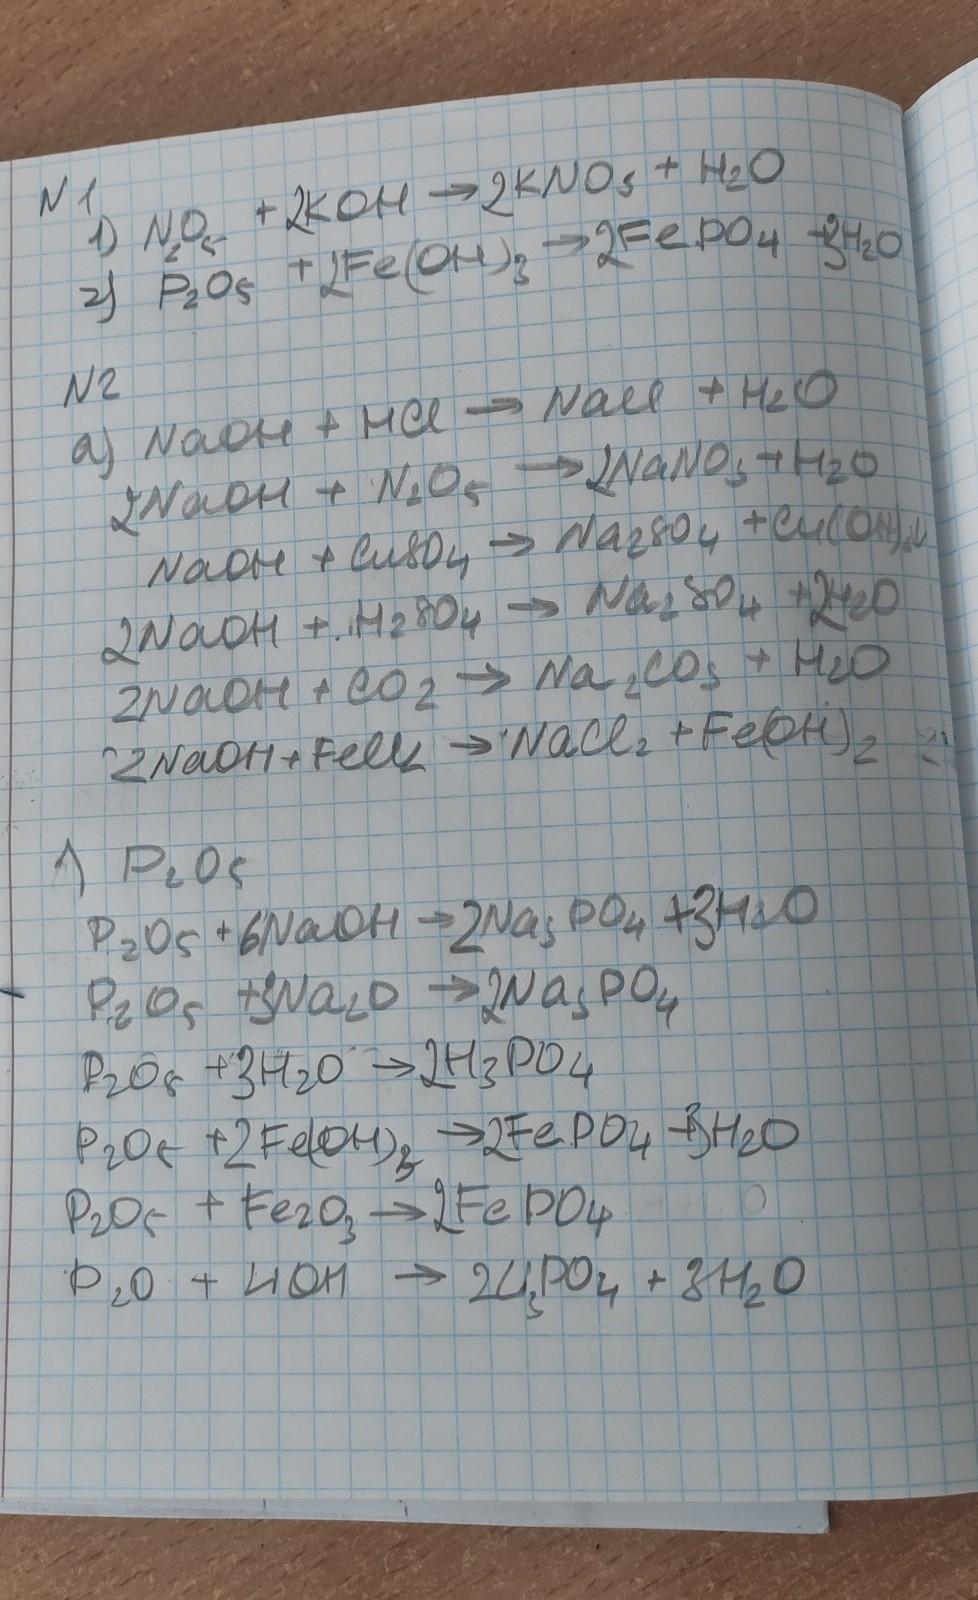 N1
1) N₂O₅ + 2KOH → 2KNO₃ + H₂O
2) P₂O₅ + 2Fe(OH)₃ → 2FePO₄ + 3H₂O
N2
a) NaOH + HCl → NaCl + H₂O
2NaOH + N₂O₅ → 2NaNO₃ + H₂O
NaOH + CuSO₄ → Na₂SO₄ + Cu(OH)₂↓
2NaOH + H₂SO₄ → Na₂SO₄ + 2H₂O
2NaOH + CO₂ → Na₂CO₃ + H₂O
2NaOH + FeCl₂ → NaCl₂ + Fe(OH)₂
1) P₂O₅
P₂O₅ + 6NaOH → 2Na₃PO₄ + 3H₂O
P₂O₅ + 3Na₂O → 2Na₃PO₄
P₂O₅ + 3H₂O → 2H₃PO₄
P₂O₅ + 2Fe(OH)₃ → 2FePO₄ + 3H₂O
P₂O₅ + Fe₂O₃ → 2FePO₄
P₂O + LiOH → 2Li₃PO₄ + 3H₂O